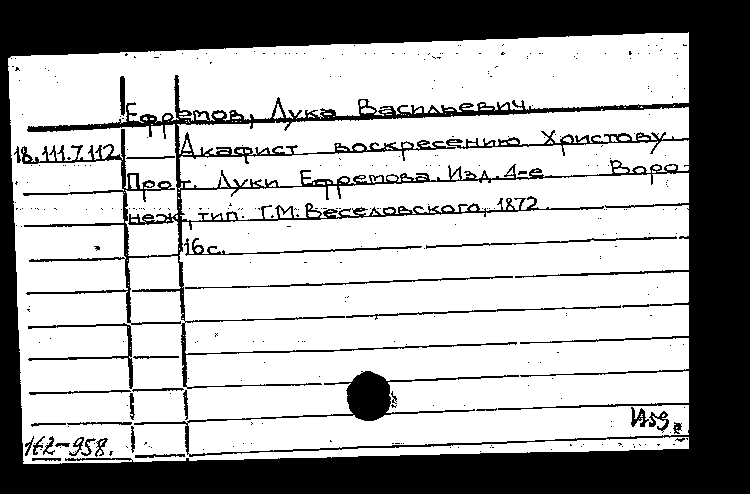 Ефремов, Лука Васильевич.
18.111.7.112 Акафист воскресению Христову.
Прот. Луки Ефремова. Изд. 4-е. Воро-
неж, тип. Г.М. Веселовского, 1872.
16 с.
162-958.